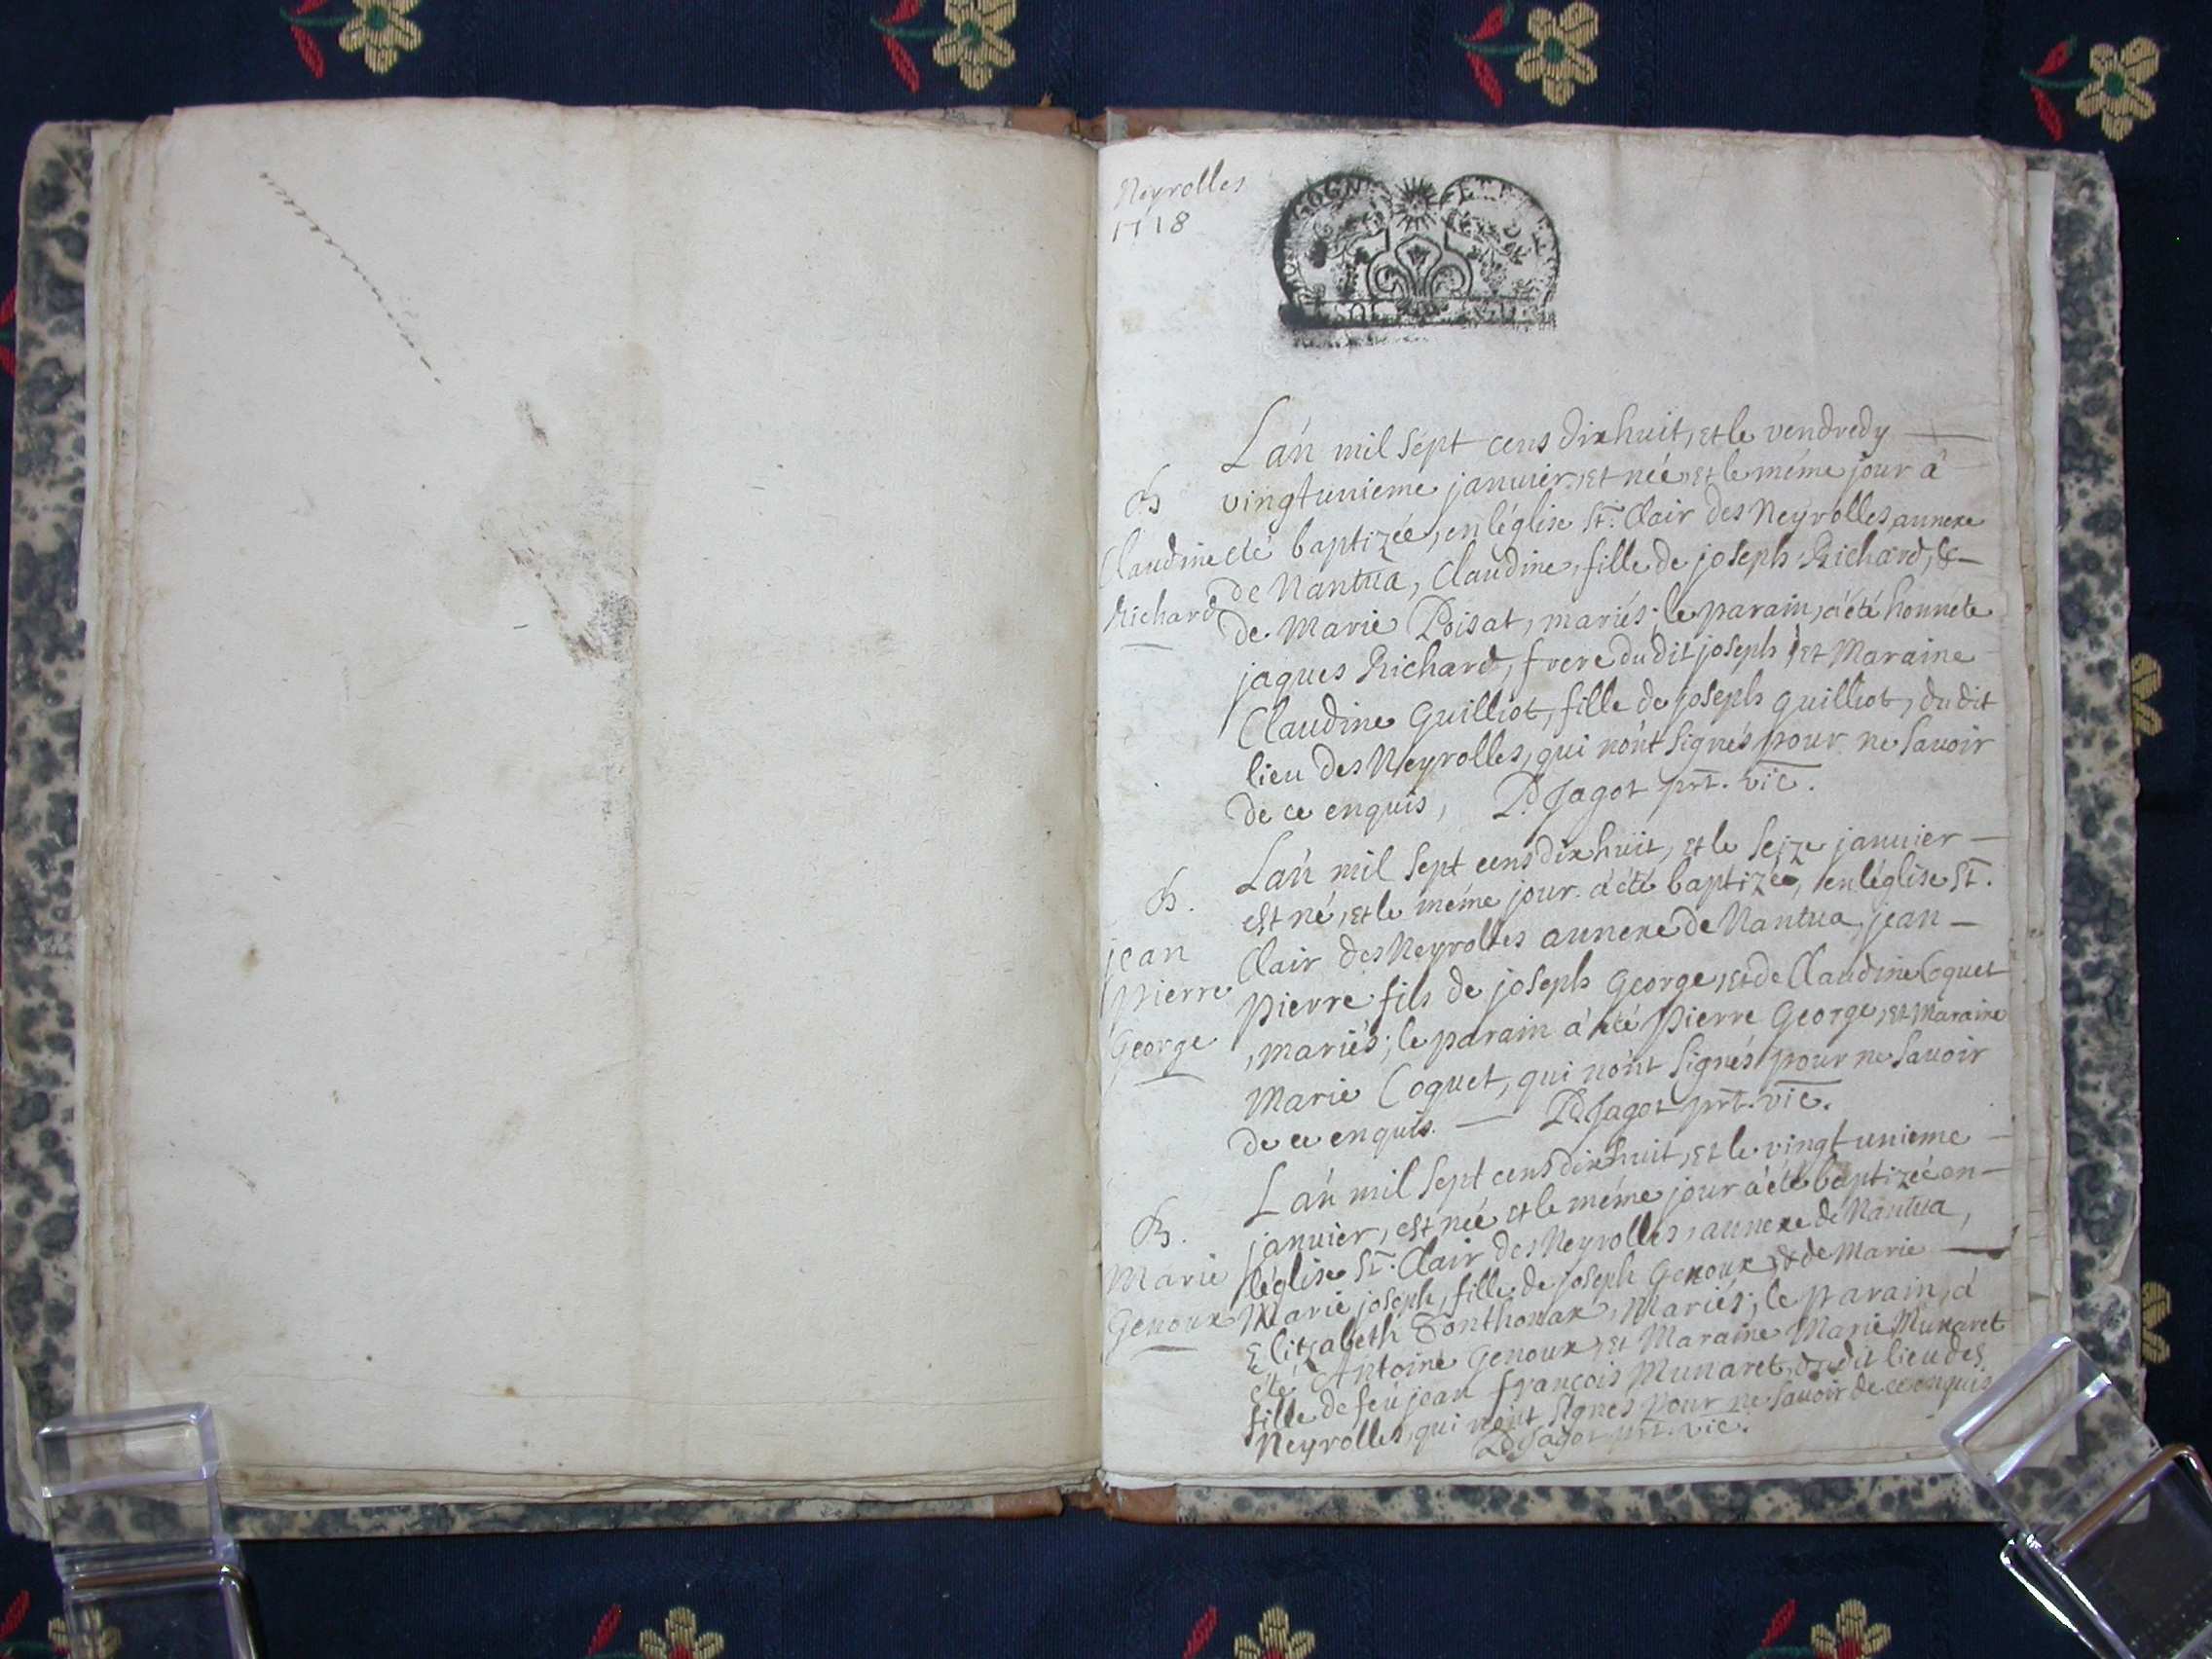 Neyrolles
1718
L'án mil sept cens dixhuit, et le vendredy
B vingtunieme januier, et née, et le méme jour á
Claudine été baptizée, en léglise St. Clair des Neyrolles annexe
Richard de Nantua, Claudine, fille de joseph Richard, &
de Marie Poisat, mariés; le parain, a'été honnete
jaques Richard, frere dudit joseph et Maraine
Claudine Guilliot, fille de joseph guilliot, du dit
lieu des Neyrolles, qui nónt signés pour ne sauoir
de ce enquis, PdJagot prt. vic.
L'án mil sept cens dixhuit, et le seize januier
B. est né, et le méme jour a'été baptizée, en léglise St.
jean Clair des Neyrolles annexe de Nantua, jean
pierre pierre fils de joseph George, et de Claudine Coquet
George , mariés; le parain á été pierre George, et Maraine
Marie Coquet, qui nónt signés pour ne sauoir
de ce enquis. PdJagot prt. vic.
L'án mil sept cens dixhuit, et le vingtunieme
B. januier, est née et le méme jour a'été baptizée en
Marie léglise St. Clair des Neyrolles, annexe de Nantua,
Genoux Marie joseph, fille de joseph Genoux & de Marie
Elitzabeth Tonthonax, Mariés; le parain, á
été Antoine Genoux, et Maraine Marie Munaret
fille de feu jean françois Munaret, du dit lieu des
Neyrolles, qui nónt signés pour ne sauoir de ce enquis
PdJagot prt. vic.